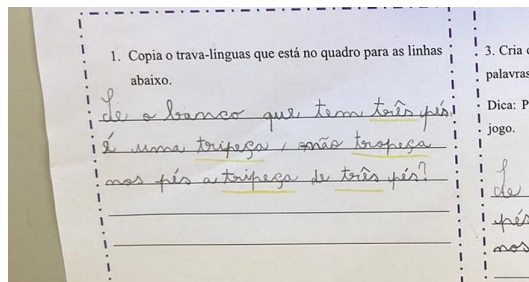 1. Copia o trava-linguas que está no quadro para as linhas
abaixo.
Se o banco que tem três pés
é uma tripeça, não tropeça
nos pés a tripeça de três pés?
3. Cria
palavras
Dica: P
jogo.
Se
pés
nos